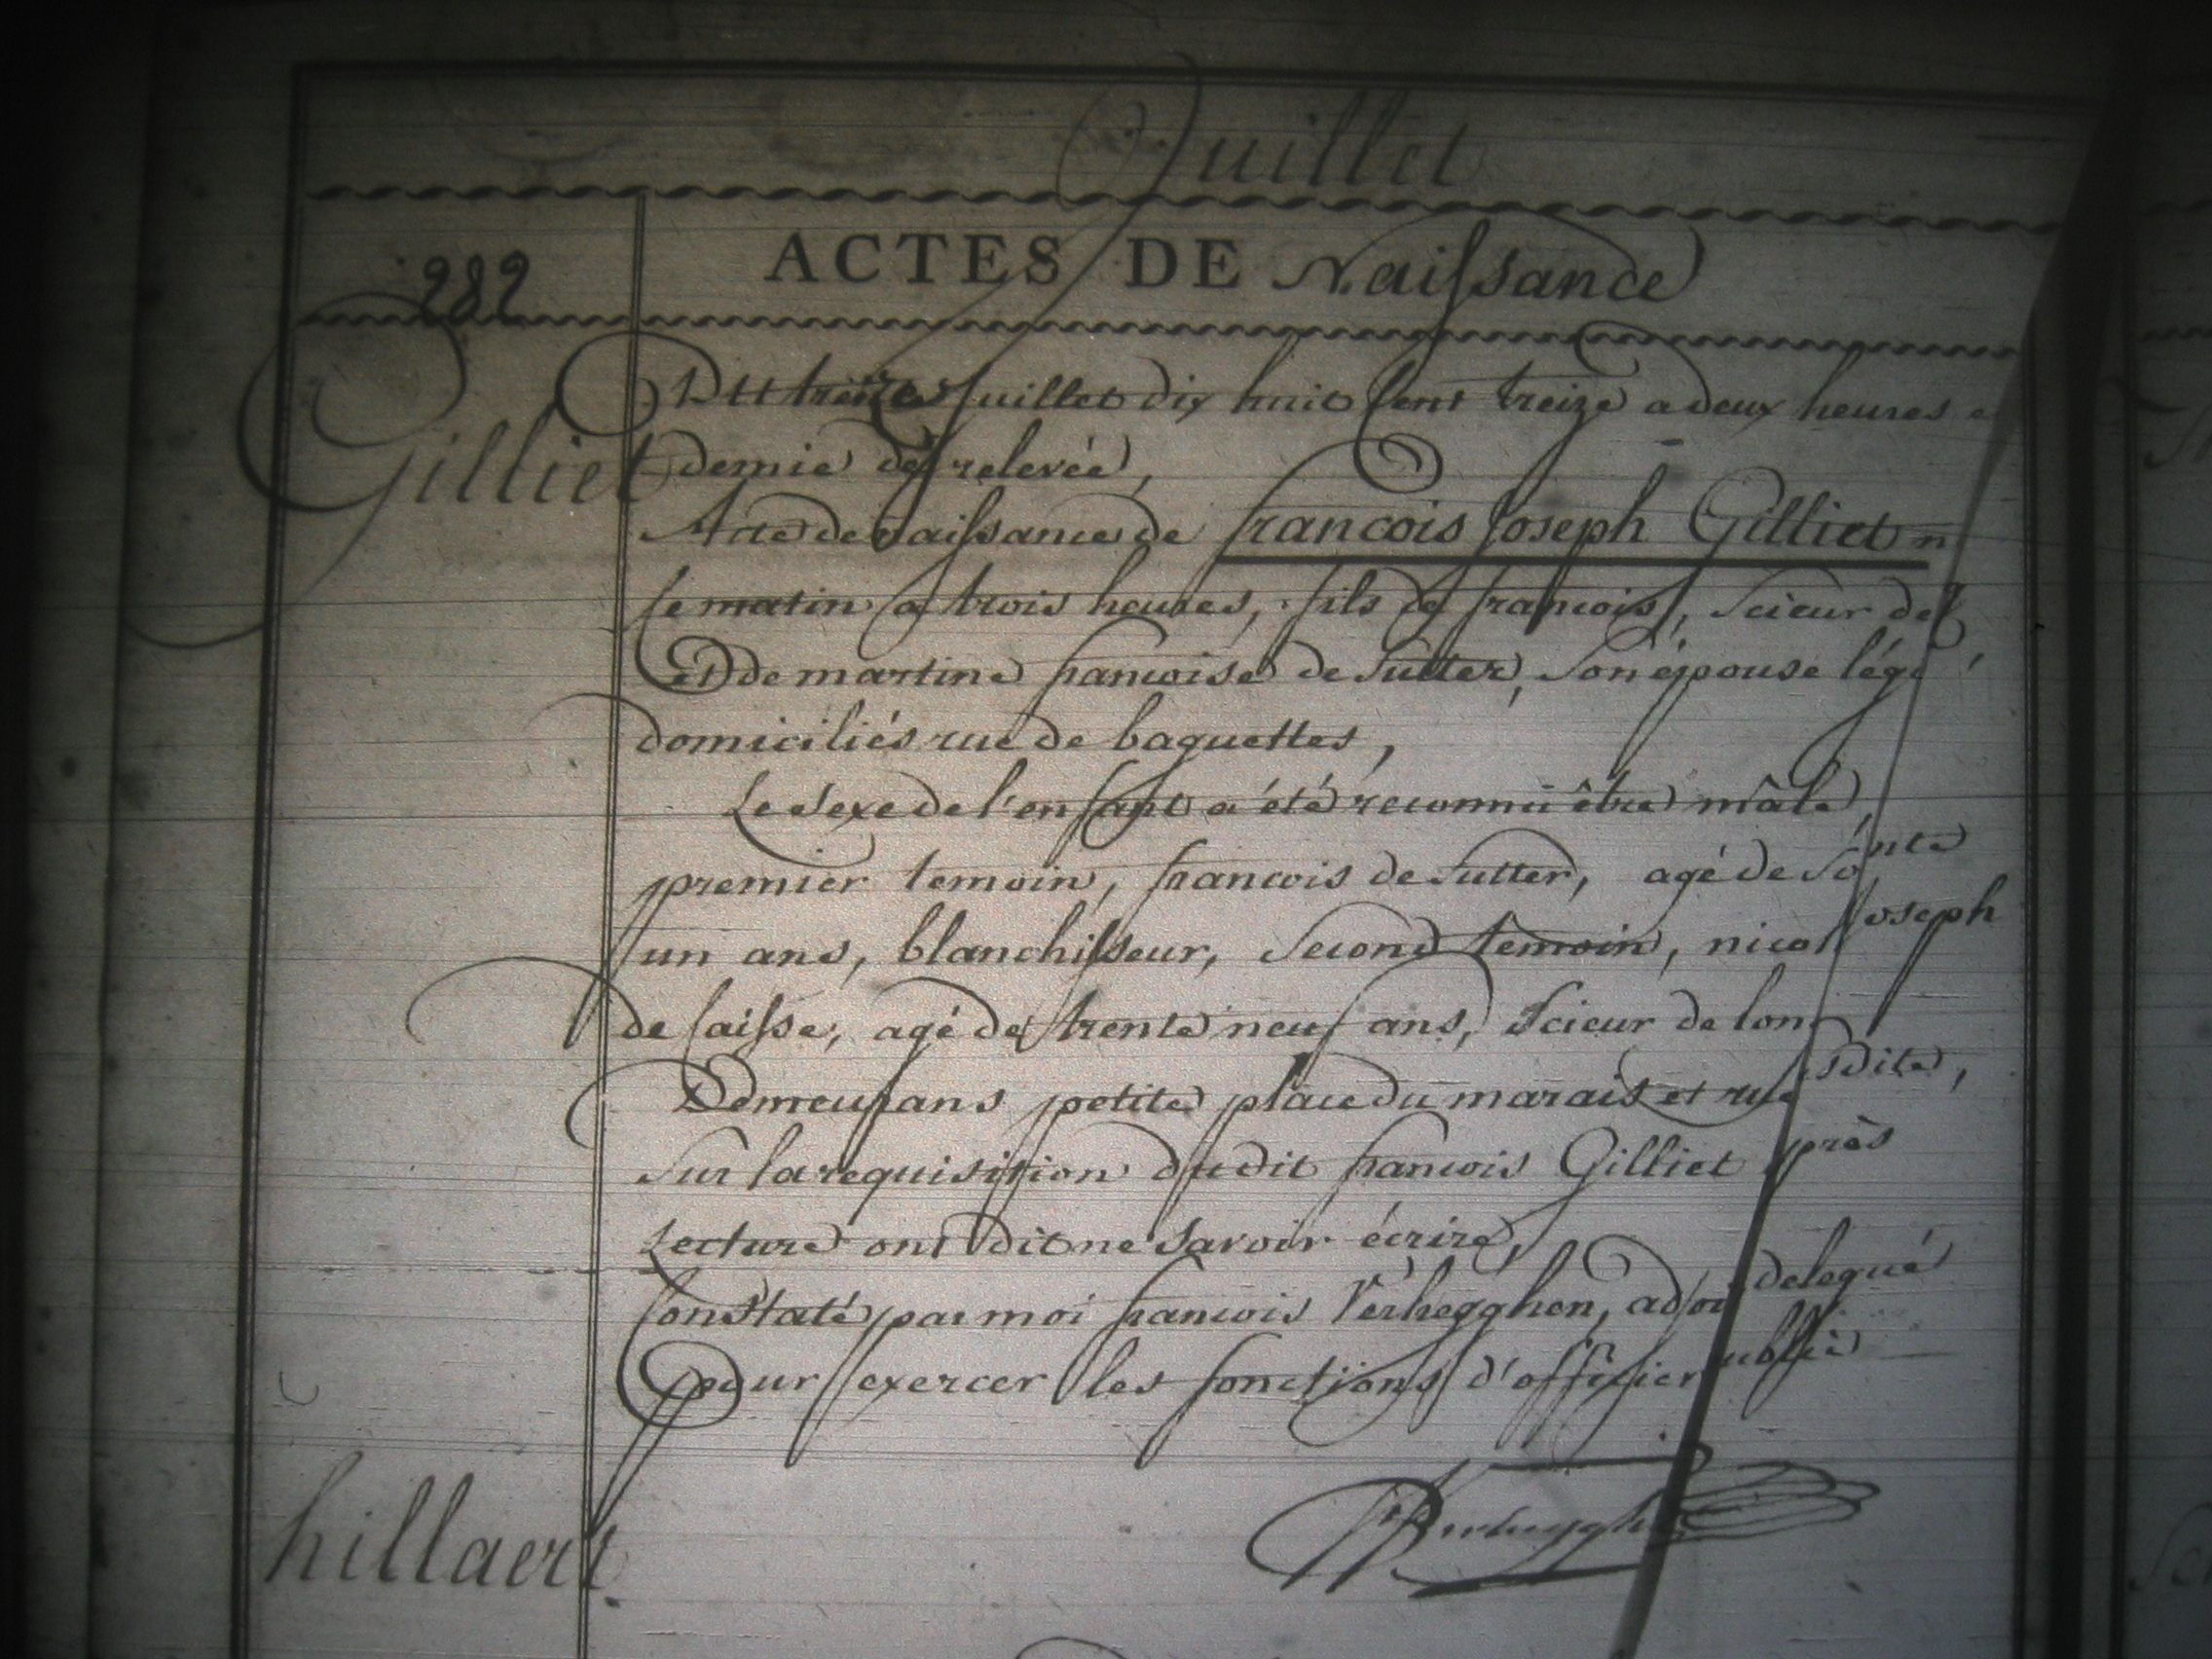 Juillet
282
ACTES DE Naissance
Du treize Juillet dix huit Cent treize a deux heures
Gilliet
demie de relevée,
Acte de naissance de francois Joseph Gilliet
ce matin a trois heures, fils de francois, Scieur de
Et de martine francoise de Sutter, Son épouse
domiciliés rue de baguettes,
Le Sexe de l'enfant a été reconnu être mâle,
premier temoin, francois de Sutter, agé de
un ans, blanchisseur, Second temoin, Joseph
de Caisse, agé de trente neuf ans, Scieur de
Demeurans petite place du marais et rue sdite,
Sur la requisition du dit francois Gilliet près
Lecture ont dit ne Savoir écrire,
Constaté par moi francois Verhegghen, delegué
pour exercer les fonctions d'officier
hillaert